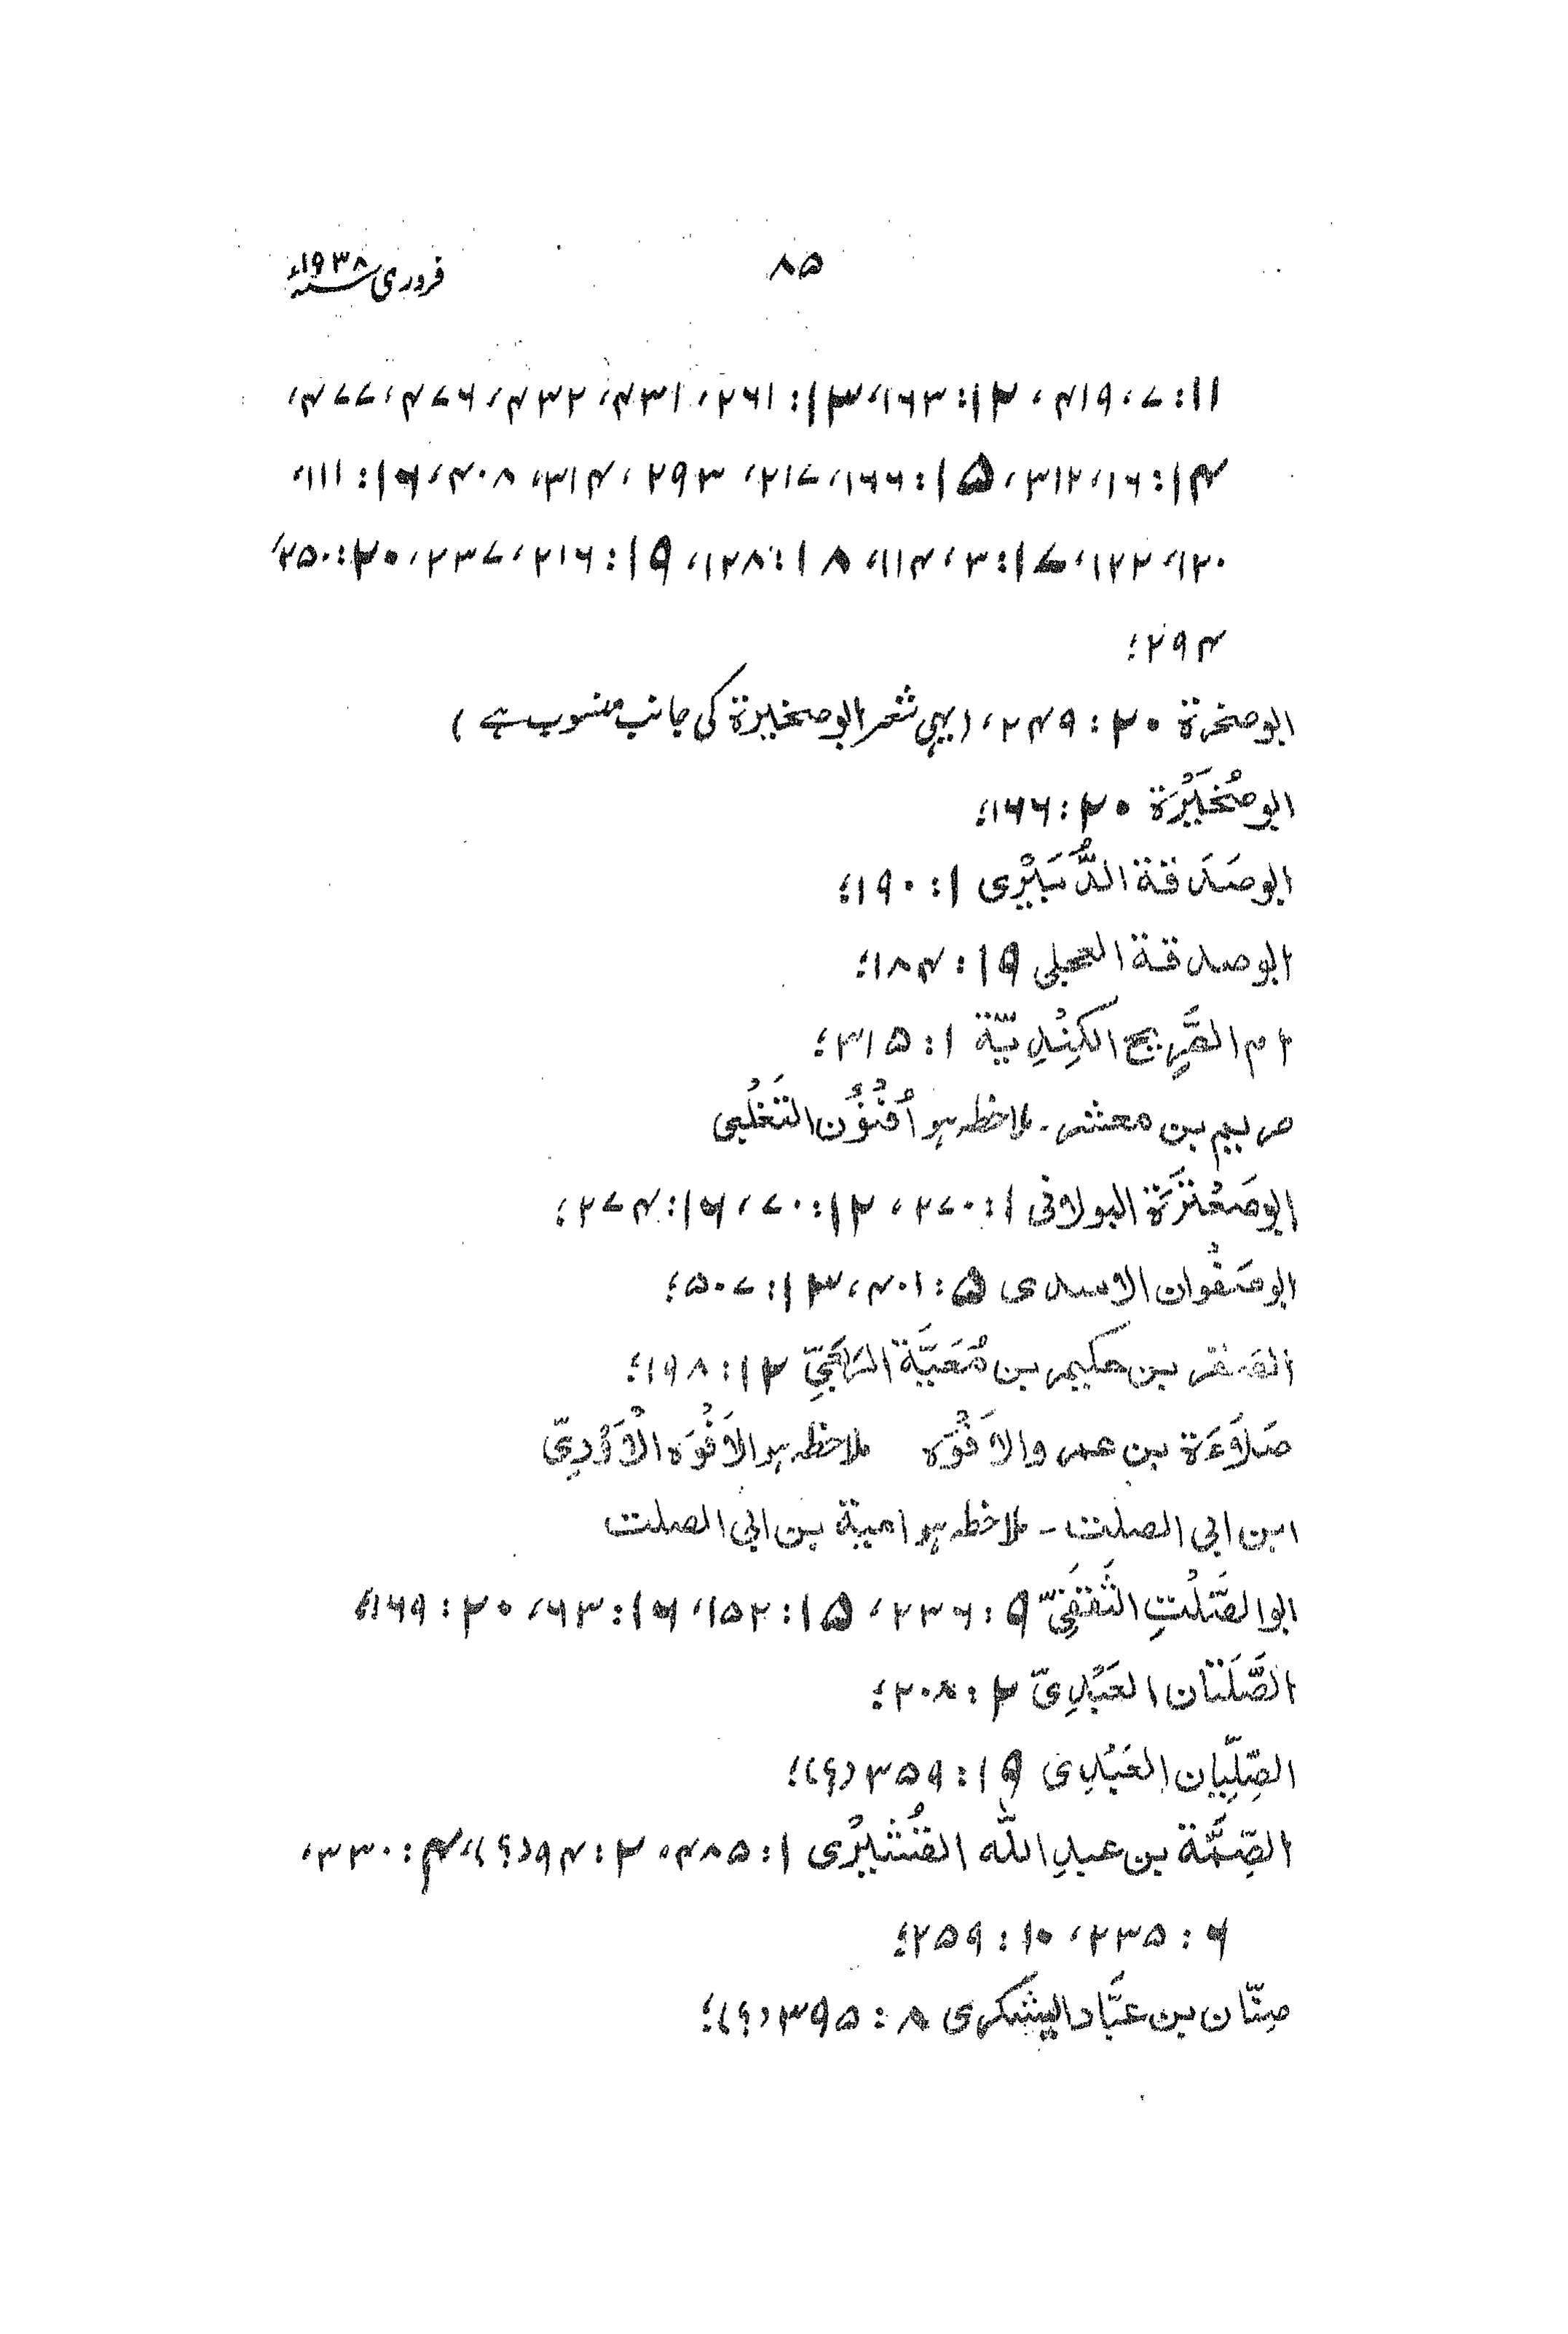 ۸۵
فروری سنہ ۱۹۳۸ء
۱۱: ۷، ۴۱۹، ۱۲: ۱۶۳، ۱۳: ۲۶۱، ۴۳۱، ۴۳۲، ۴۷۶، ۴۷۷،
۱۴: ۱۶، ۳۱۲، ۱۵: ۱۶۶، ۲۱۷، ۲۹۳، ۳۱۴، ۴۰۸، ۱۶: ۱۱۱،
۱۲۰، ۱۲۲، ۱۷: ۳، ۱۱۴، ۱۸: ۱۲۸، ۱۹: ۲۱۶، ۲۳۷، ۲۰: ۲۵۰،
۲۹۴؛
ابو صخرة ۲۰: ۲۴۹، (یہی شعر ابو صخیرة کی جانب منسوب ہے)
ابو صُخَيْرَة ۲۰: ۱۶۶؛
ابو صَدَقة الدُّبَيْرى ۱: ۱۹۰؛
ابو صدقة العجلى ۱۹: ۱۸۴؛
ام الصَّرِيح الكِنْدِيّة ۱: ۳۱۵؛
صريم بن معشر ـ ملاحظہ ہو اُفْنُوْن التَغْلُبى
ابو صَعْتَرَة البولانى ۱: ۲۷۰، ۱۲: ۷۰، ۱۶: ۲۷۴؛
ابو صَفْوان الاسدى ۵: ۴۰۱، ۱۳: ۵۰۷؛
الصقر بن حكيم بن مُعَيَّة الرَّبَعِىّ ۱۲: ۱۹۸؛
صَلَاءَة بن عمرو الافْوَه ملاحظہ ہو الاَفْوَه الْاَوْدِىّ
ابن ابى الصلت ـ ملاحظہ ہو امية بن ابى الصلت
ابو الصَّلْتِ الثَّقَفِىّ ۹: ۲۳۶، ۱۵: ۱۵۲، ۱۶: ۶۳، ۲۰: ۱۶۹؛
الصَّلَتَان العَبْدِىّ ۲: ۲۰۸؛
الصِّلِّيان العَبْدِى ۱۹: ۳۵۹ (؟)؛
الصِّمَّة بن عبدِ اللّٰه القُشَيْرى ۱: ۴۸۵، ۲: ۹۴ (؟)، ۴: ۳۳۰،
۶: ۲۳۵، ۱۰: ۲۵۹؛
صِنّان بن عَبَّاد اليشكرى ۸: ۳۹۵ (؟)؛